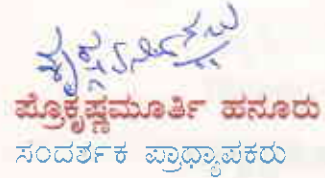 ಪ್ರೊಕೃಷ್ಣಮೂರ್ತಿ ಹನೂರು
ಸಂದರ್ಶಕ ಪ್ರಾಧ್ಯಾಪಕರು